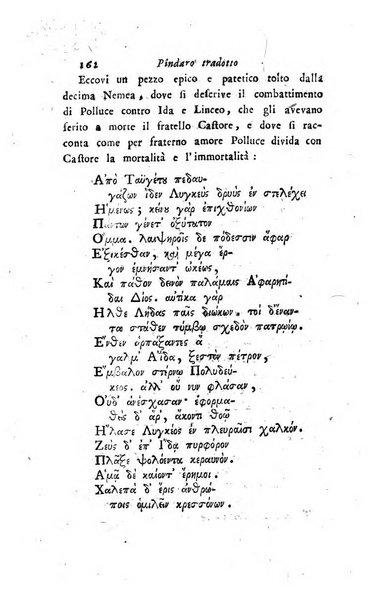 162 Pindaro tradotto
Eccovi un pezzo epico e patetico tolto dalla
decima Nemea, dove si descrive il combattimento
di Polluce contro Ida e Linceo, che gli avevano
ferito a morte il fratello Castore, e dove si rac-
conta come per fraterno amore Polluce divida con
Castore la mortalità e l'immortalità :
Απὸ Ταϋγέτου πεδαυ-
γάζων ἴδεν Λυγκεὺς δρυὸς ἐν στελέχει
Ημένους; κείνου γὰρ ἐπιχθονίων
Πάντων γένετ' ὀξύτατον
Ομμα. λαιψηροῖς δὲ πόδεσσιν ἄφαρ
Εξικέσθαν, καὶ μέγα ἔρ-
γον ἐμνήσαντ' ὠκέως,
Καὶ πάθον δεινὸν παλάμαις Αφαρητί-
δαι Διός. αὐτίκα γὰρ
Ηλθε Λήδας παῖς διώκων. τοὶ δ' ἔναν-
τα στάθεν τύμβῳ σχεδὸν πατρωΐῳ.
Ενθεν ἁρπάξαντες ἄ-
γαλμ' Αΐδα, ξεστὸν πέτρον,
Εμβαλον στέρνῳ Πολυδεύ-
κεος. ἀλλ' οὔ νυν φλάσαν,
Οὐδ' ἀνέχασαν· ἐφορμα-
θεὶς δ' ἄρ', ἄκοντι θοῷ
Ηλασε Λυγκέος ἐν πλευραῖσι χαλκόν.
Ζεὺς δ' ἐπ' Ιδα πυρφόρον
Πλᾶξε ψολόεντα κεραυνόν.
Αμᾶ δὲ καίοντ' ἔρημοι.
Χαλεπὰ δ' ἔρις ἀνθρώ-
ποις ὁμιλεῖν κρεσσόνων.